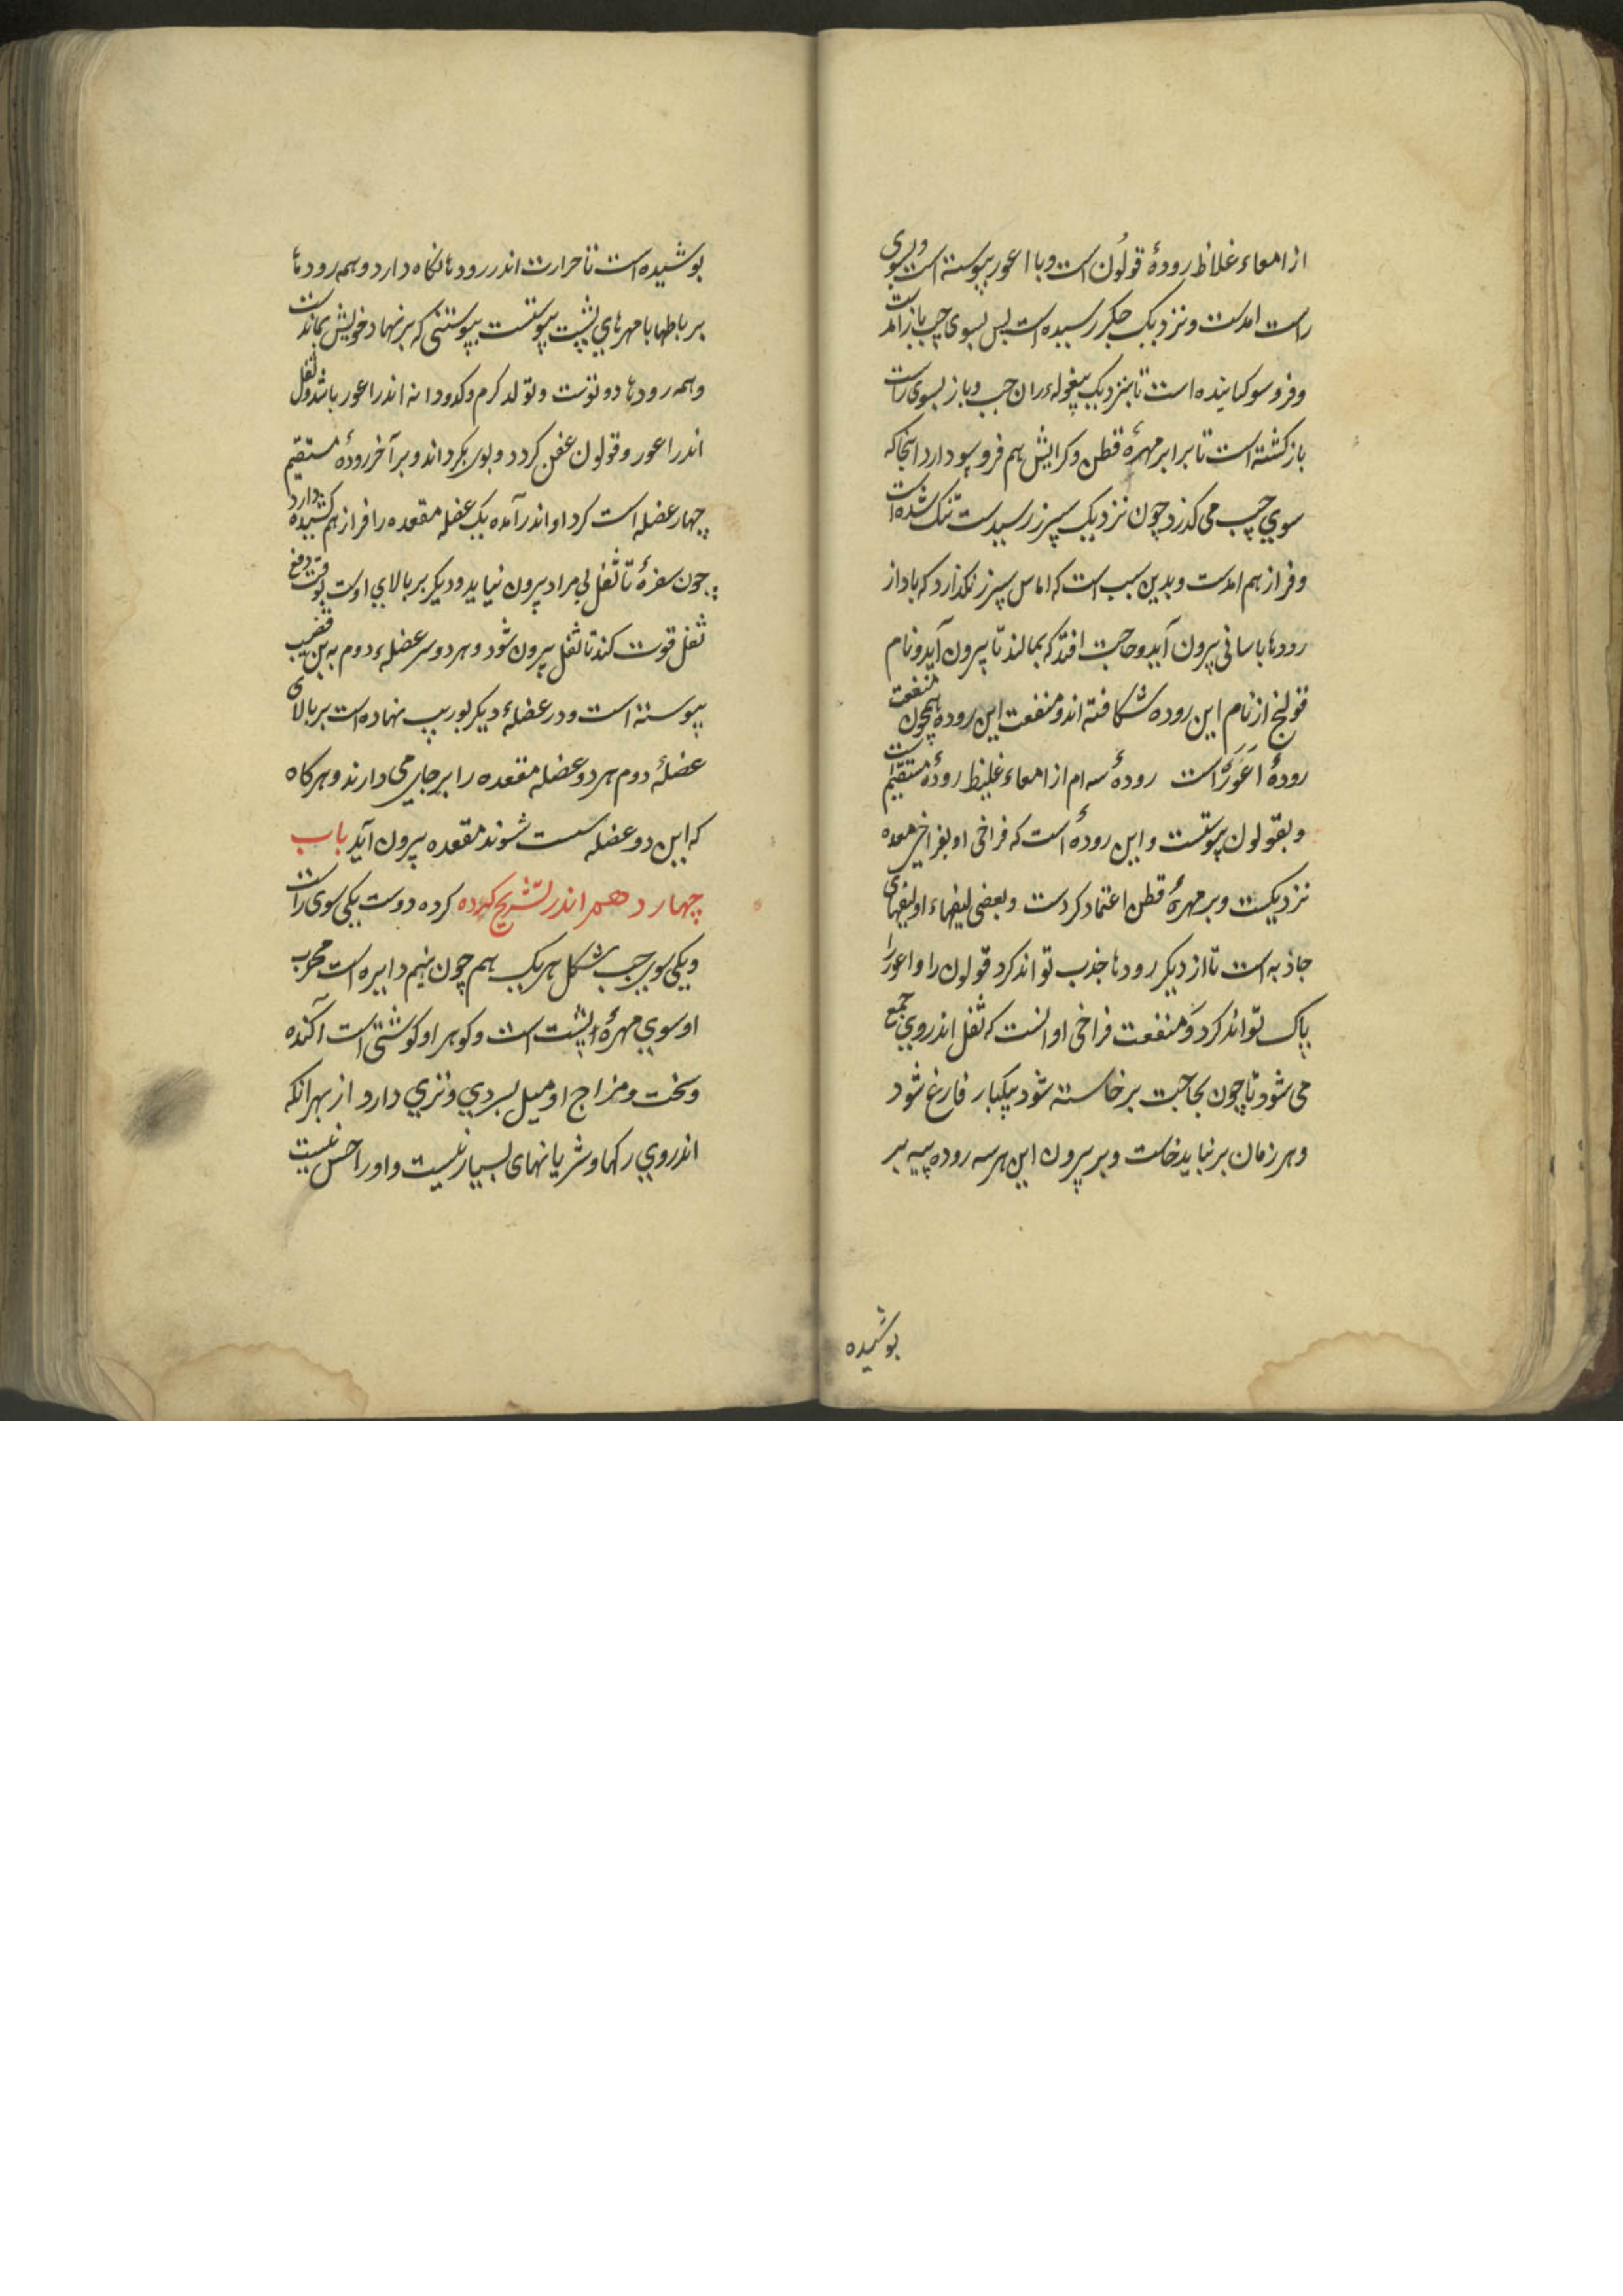 از امعاء غلاظ رودهٔ قولُون است و با اعور پیوسته است و بسوی
راست امدست و نزدیک جکر رسیده است پس بسوی چپ باز امدست
و فرو سو کراینده است تا بنزدیک پیغوله ران چپ و باز بسوی راست
باز کشته است تا برابر مهرهٔ قطن و کرایش هم فرو سو دارد اینجا که
سوی چپ می کذرد چون نزدیک سپرز رسیدست تنک شده است
و فراز هم امدست و بدین سبب است که اماس سپرز نکذارد که باد از
رودها باسانی بیرون آید و حاجت افتد که بمالند تا بیرون آید و نام
قولنج از نام این روده شکافته اند و منفعت این روده همچون منفعت
رودهٔ اَعوَر است رودهٔ سه ام از امعاء غلیظ رودهٔ مستقیم است
و بقولون پیوستست و این رودهٔ است که فراخی او بفراخی معده
نزدیکست و بر مهرهٔ قطن اعتماد کردست و بعضی لیفهاء او لیفهای
جاذبه است تا از دیکر رودها جذب تواند کرد قولون را و اعور را
پاک تواند کرد و منفعت فراخی او انست که ثفل اندروی جمع
می شود تا چون بحاجت برخاسته شود بیکبار فارغ شود
و هر زمان برنباید خاست و بر بیرون این هر سه روده پیه بر
بوشیده
بوشیده است تا حرارت اندر رودها نکاه دارد و همه رودها
برباطها با مهرهای پشت پیوستست پیوستنی که بر نهاد خویش بماندست
و همه رودها دو توست و تولد کرم و کدودانه اندر اعور باشد و ثفل
اندر اعور و قولون عفن کردد و بوی بکرداند و بر آخر رودهٔ مستقیم
چهار عضله است کرد او اندر آمده یک عضله مقعده را فراز هم کشیده دارد
چون سفرهٔ تا ثفل بی مراد بیرون نیاید و دیکر بر بالای اوست بوقت دفع
ثفل قوت کند تا ثفل بیرون شود و هر دو سر عضلهء دوم به بن قضیب
پیوسته است و در عضلهء دیکر بوریب نهاده است بر بالای
عضلهٔ دوم هر دو عضله مقعده را بر جای می دارند و هرکاه
که این دو عضله سست شوند مقعده بیرون آید باب
چهاردهم اندر تشریح کرده کرده دوست یکی سوی راست
و یکی سوی چپ شکل هر یک هم چون نیم دایره است محدب
او سوی مهرهٔ پشت است و کوهر او کوشتی است آکنده
و سخت و مزاج او میل بسردی و تری دارد از بهر انکه
اندروی رکها و شریانهای بسیار نیست و او را حس نیست